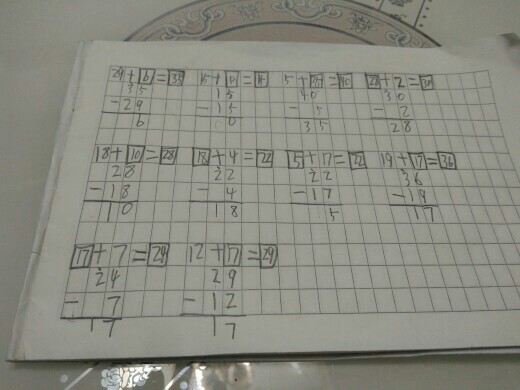 29+6=35 15+0=15 5+35=40 28+2=30
35 15 40 30
-29 -15 -5 -2
6 0 35 28
18+10=28 18+4=22 5+17=22 19+17=36
28 22 22 36
-18 -4 -17 -19
10 18 5 17
17+7=24 12+17=29
24 29
-7 -12
17 17